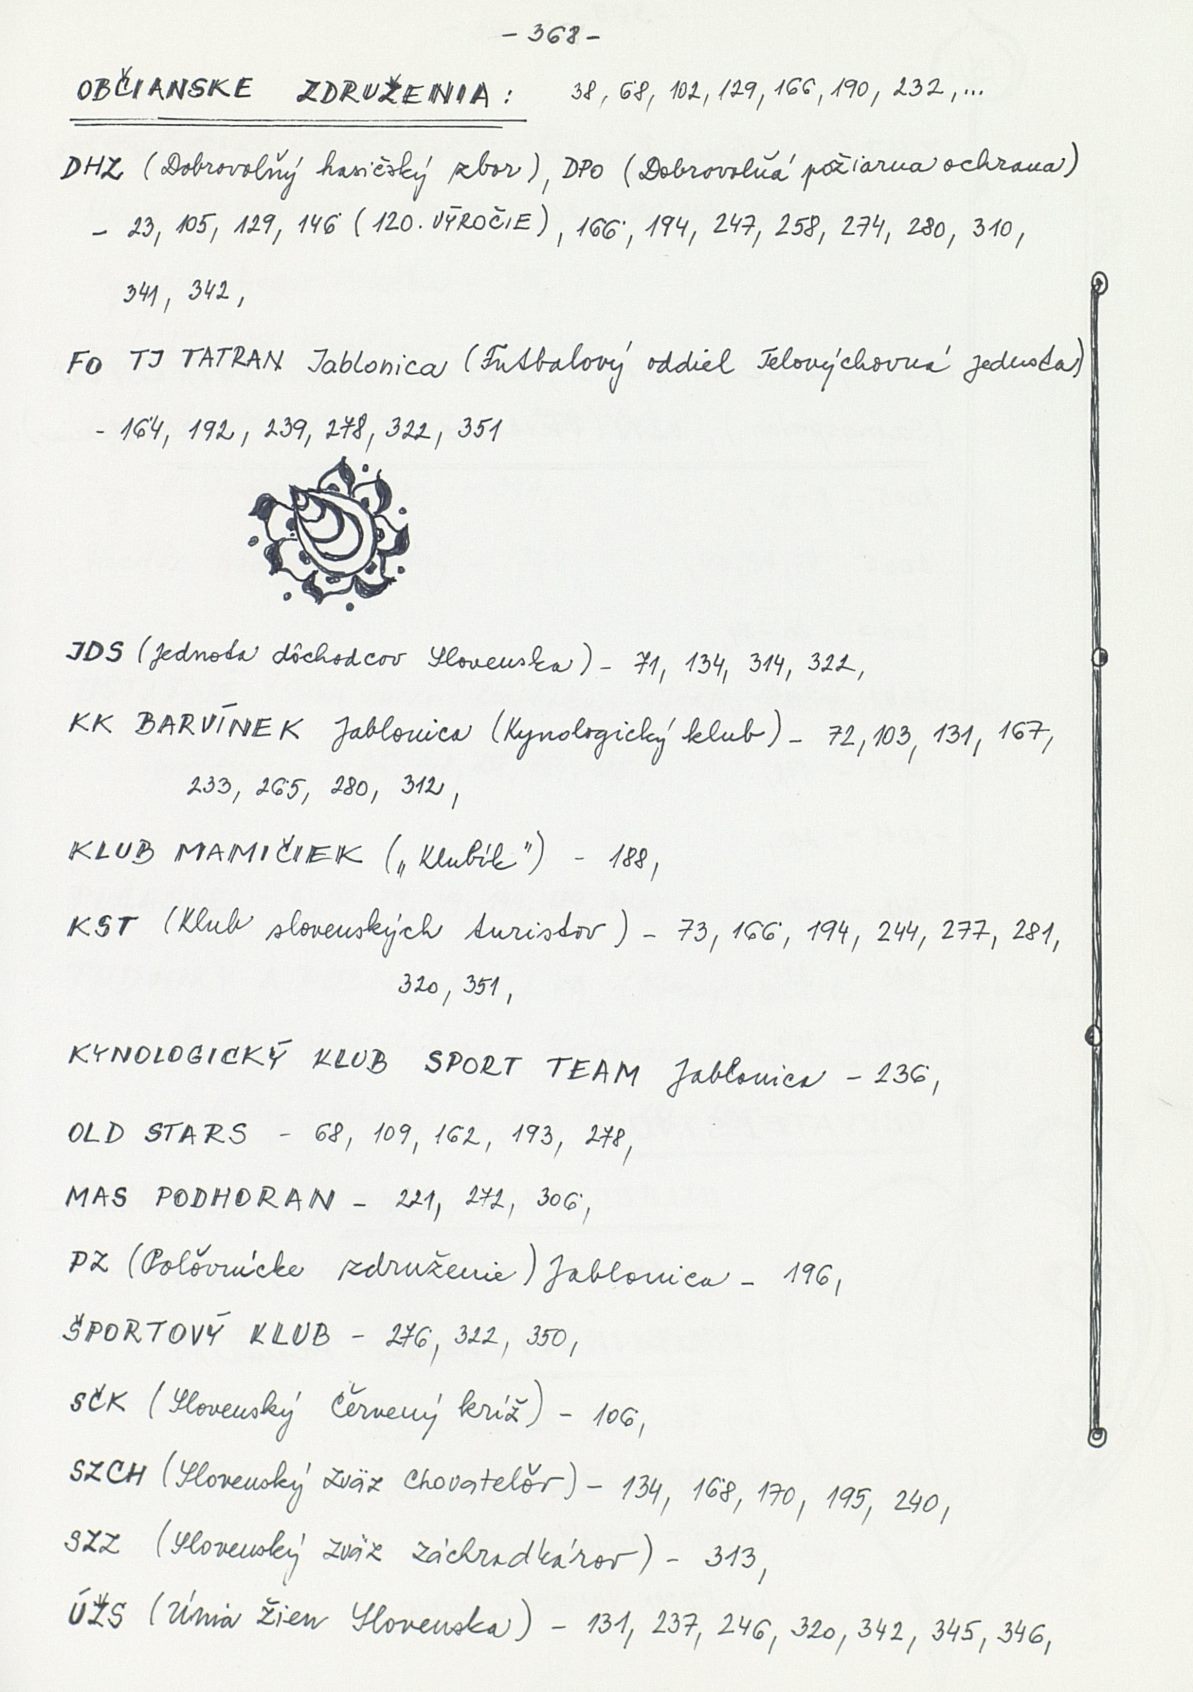 - 368 -
OBČIANSKE ZDRUŽENIA: 38, 68, 102, 129, 166, 190, 232, ...
DHZ (Dobrovoľný hasičský zbor), DPO (Dobrovoľná požiarna ochrana)
- 23, 105, 129, 146 (120. VÝROČIE), 166, 194, 247, 258, 274, 280, 310,
341, 342,
FO TJ TATRAN Jablonica (Futbalový oddiel Telovýchovná jednota)
- 164, 192, 239, 278, 322, 351
JDS (Jednota dôchodcov Slovenska) - 71, 134, 314, 322,
KK BARVÍNEK Jablonica (Kynologický klub) - 72, 103, 131, 167,
233, 265, 280, 312,
KLUB MAMIČIEK („Klubík") - 188,
KST (Klub slovenských turistov) - 73, 166, 194, 244, 277, 281,
320, 351,
KYNOLOGICKÝ KLUB SPORT TEAM Jablonica - 236,
OLD STARS - 68, 109, 162, 193, 278,
MAS PODHORAN - 221, 272, 306,
PZ (Poľovnícke združenie) Jablonica - 196,
ŠPORTOVÝ KLUB - 276, 322, 350,
SČK (Slovenský Červený kríž) - 106,
SZCH (Slovenský zväz chovateľov) - 134, 168, 170, 195, 240,
SZZ (Slovenský zväz záhradkárov) - 313,
ÚŽS (Únia žien Slovenska) - 131, 237, 246, 320, 342, 345, 346,